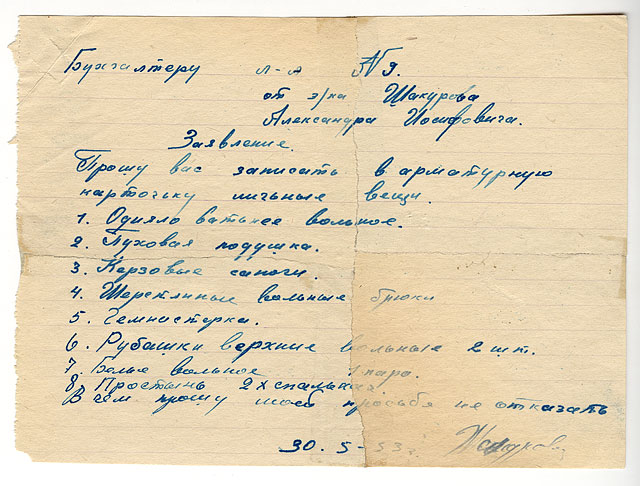 Бухгалтеру л-п № 9.
от з/ка Шакурова
Александра Иосифовича.
Заявление.
Прошу вас записать в арматурную
карточьку личьные вещи.
1. Одияло ватьнее вольное.
2. Пуховая подушка.
3. Керзовые сапоги.
4. Шерстинные вольные брюки
5. Гемнастерка.
6. Рубашки верхние вольные 2 шт.
7. Белье вольное 1 пара.
8. Простынь 2х спальная
В чем прошу моей просьбе не отказать
30.5-53 г.